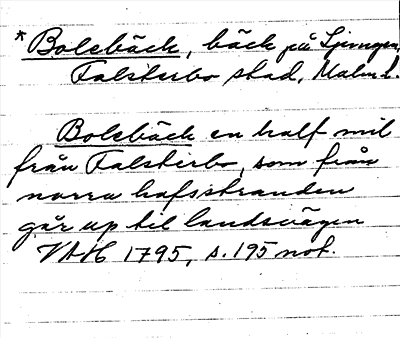 * Bolsbäck, bäck på Ljungen,
Falsterbo stad, Malm. l.
Bolsbäck en half mil
från Falsterbo, som från
norra hafsstranden
går up til landsvägen
VAH 1795, s. 195 not.